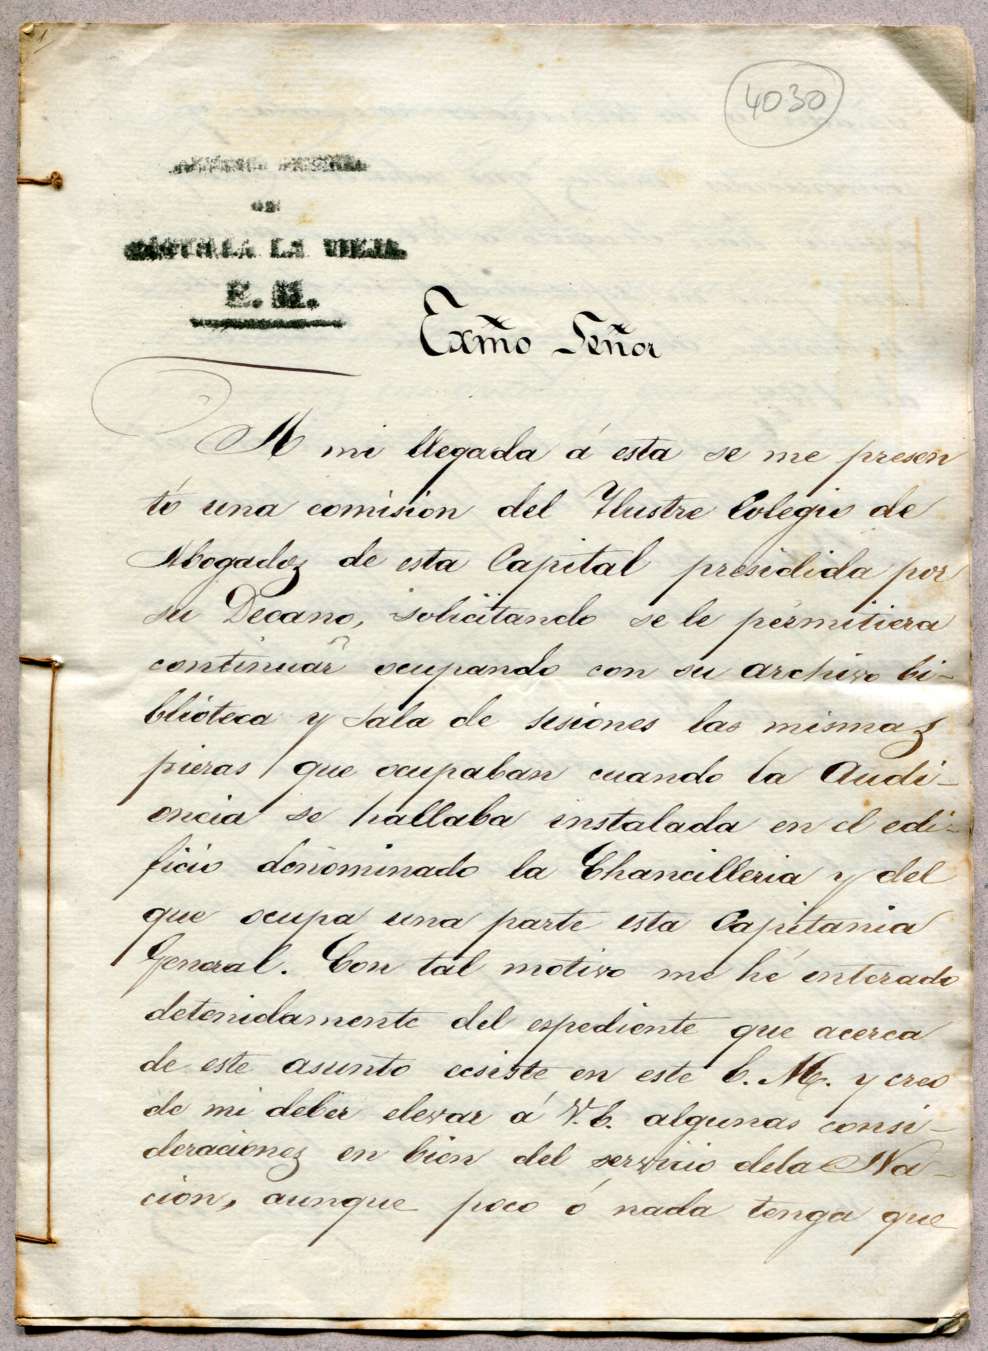 4030
CAPITANIA GENERAL
DE
CASTILLA LA VIEJA.
E. M.
Exmõ Señor
A mi llegada á esta se me presen
tó una comision del Ilustre Colegio de
Abogados de esta Capital presidida por
su Decano, solicitando se le permitiera
continuar ocupando con su archivo bi-
blioteca y sala de sesiones las mismas
piezas que ocupaban cuando la Audi-
encia se hallaba instalada en el edi-
ficio denominado la Chancilleria y del
que ocupa una parte esta Capitania
General. Con tal motivo me hé enterado
detenidamente del espediente que acerca
de este asunto ecsiste en este E. M. y creo
de mi deber elevar á V.E. algunas consi-
deraciones en bien del servicio dela Na-
cion, aunque poco ó nada tenga que